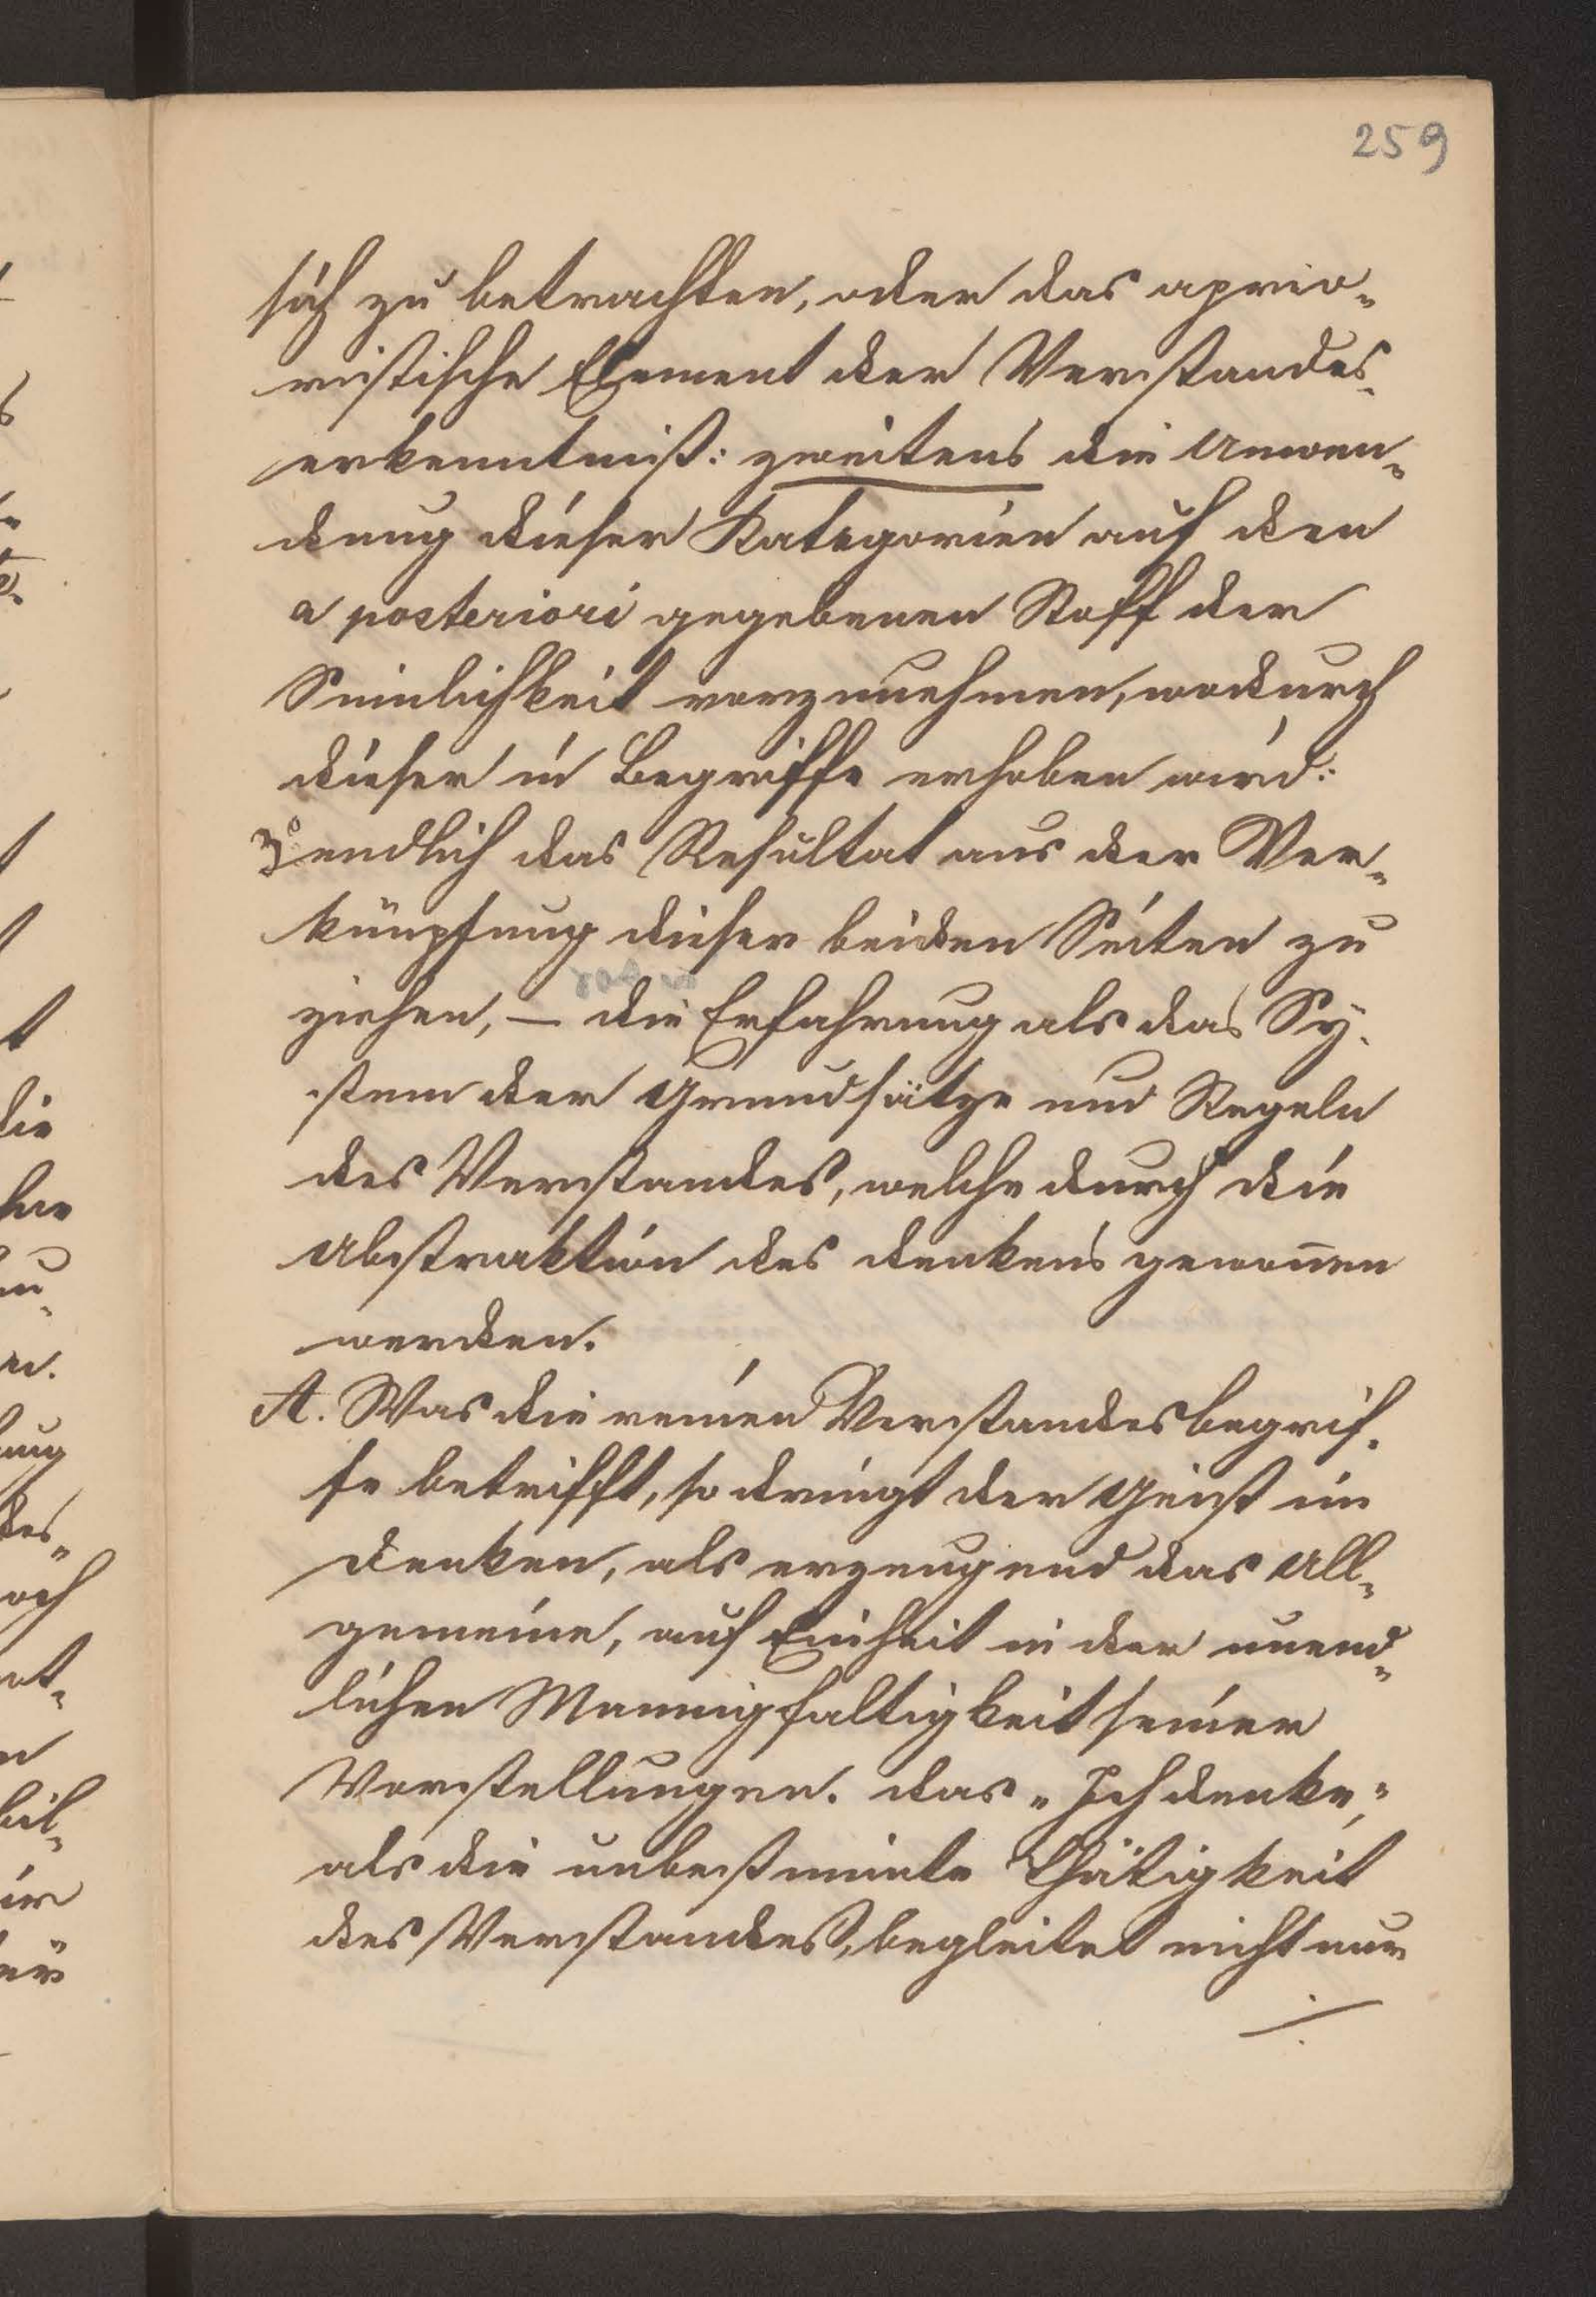 259
sich zu betrachten, oder das aprio„
ristische Element der Verstandes„
erkenntniß: zweitens die Anwen„
dung dieser Kategorien auf den
a posteriori gegebenen Stoff der
Sinnlichkeit vorzunehmen, wodurch
dieser in Begriffe erhoben wird:
3° endlich das Resultat aus der Ver„
knüpfung dieser beiden Seiten zu
ziehen, — die Erfahrung als das Sy„
stem der Grundsätze und Regeln
des Verstandes, welche durch die
Abstraktion des denkens gewon̅en
werden.
A. Was die reinen Verstandesbegrif„
fe betrifft, so dringt der Geist im
denken, als erzeugend das All„
gemeine, auf Einheit in der unend„
lichen Mannigfaltigkeit seiner
Vorstellungen. das „Ich denke,"
als die unbestimmte Thätigkeit
des Verstandes, begleitet nicht nur
./.